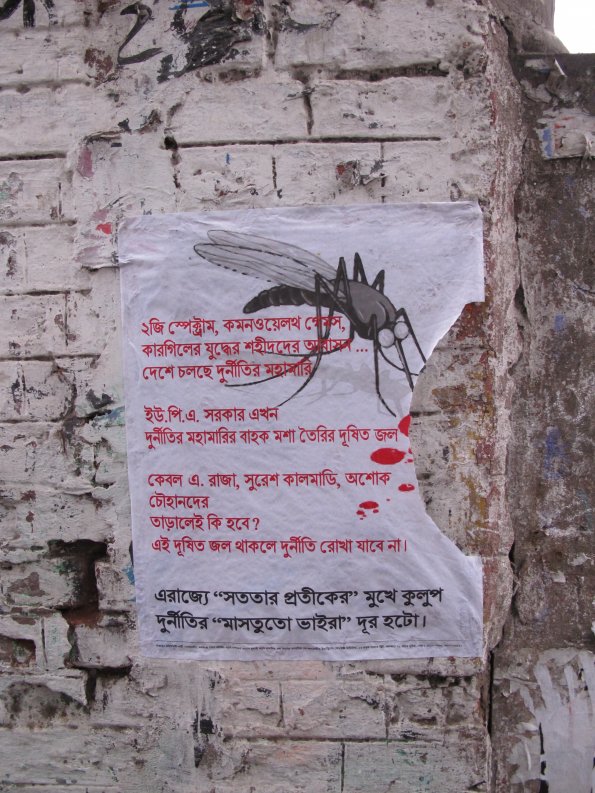 ২জি স্পেক্ট্রাম, কমনওয়েলথ গেমস,
কারগিলের যুদ্ধের শহীদদের আবাসন ...
দেশে চলছে দুর্নীতির মহামারি
ইউ.পি.এ. সরকার এখন
দুর্নীতির মহামারির বাহক মশা তৈরির দূষিত জল
কেবল এ. রাজা, সুরেশ কালমাডি, অশোক
চৌহানদের
তাড়ালেই কি হবে?
এই দূষিত জল থাকলে দুর্নীতি রোখা যাবে না।
এরাজ্যে “সততার প্রতীকের” মুখে কুলুপ
দুর্নীতির “মাসতুতো ভাইরা” দূর হটো।